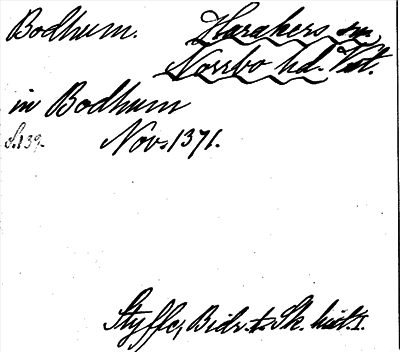 Bodhum. Harakers sn,
Norrbo hd. Vstl.
in Bodhum
S.139. Nov. 1371.
Styffe, Bidr. t. Sk. hist. I.